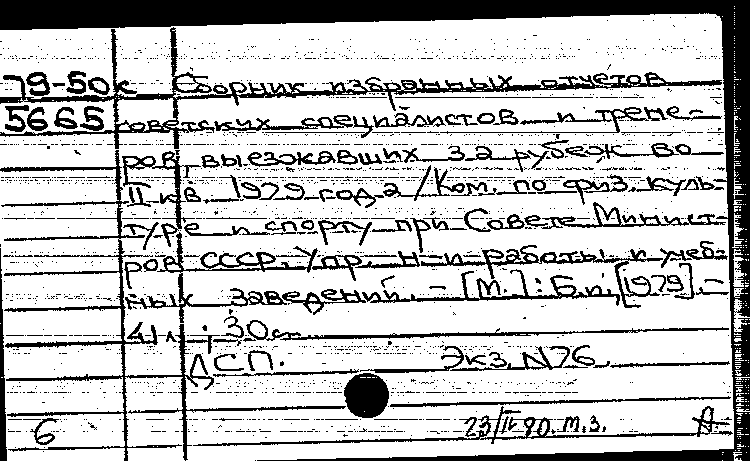 79-50к Сборник избранных отчетов
5665 советских специалистов и трене-
ров, выезжавших за рубеж во
II кв. 1979 года / Ком. по физ. куль-
туре и спорту при Совете Минист-
ров СССР. Упр. н.-и. работы и учеб-
ных заведений. - [М.]: Б.и., [1979]. -
41 л.; 30 см
ДСП. Экз. N76.
6 23/IV 80. м.з. А